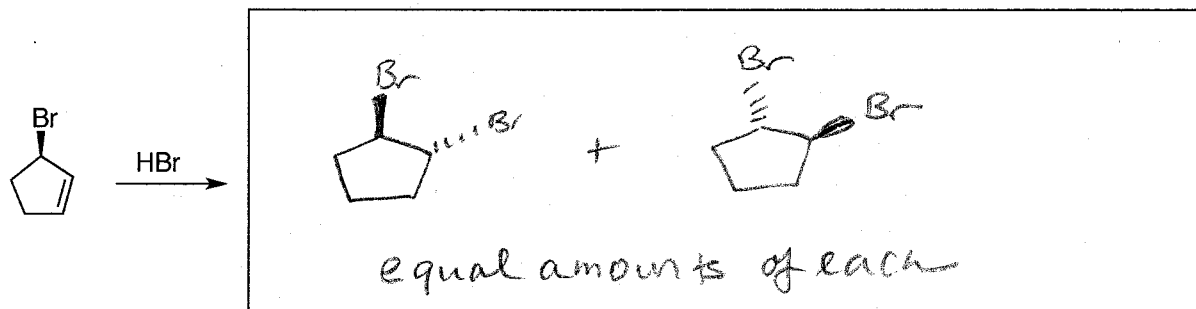 Br
Br
Br
+
Br
Br
HBr
equal amounts of each